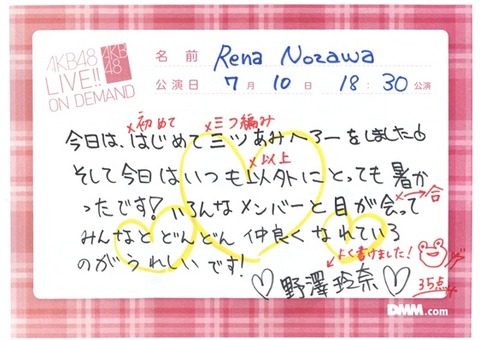 AKB48
LIVE!!
ON DEMAND
AKB
48
名前 Rena Nozawa
公演日 7月10日 18:30公演
×初めて ×三つ編み
今日は、はじめて三ツあみへろーをしました
×以上
そして今日はいつも以外にとっても暑か
ったです! いろんなメンバーと目が会って
×→合
みんなとどんどん仲良くなれている
のがうれしいです!
よく書けました!
野澤玲奈
35点
DMM.com